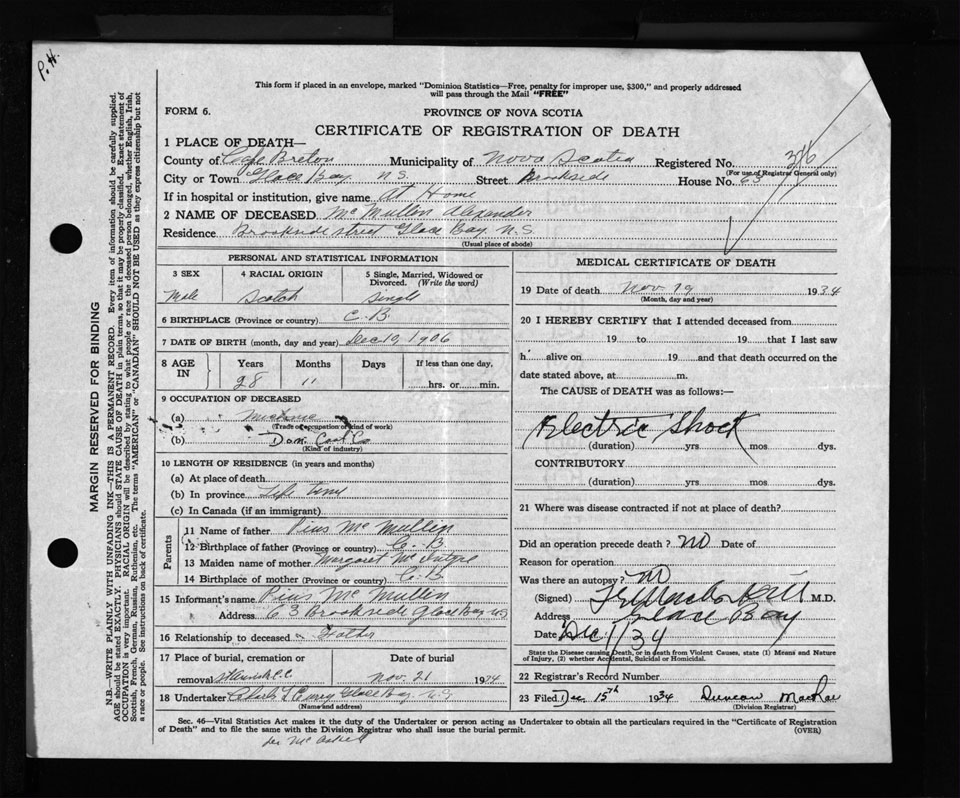 P.H.
This form if placed in an envelope, marked "Dominion Statistics—Free, penalty for improper use, $300," and properly addressed
will pass through the Mail "FREE"
FORM 6. PROVINCE OF NOVA SCOTIA
CERTIFICATE OF REGISTRATION OF DEATH
1 PLACE OF DEATH—
County of Cape Breton Municipality of Nova Scotia Registered No. 376
(For use of Registrar General only)
City or Town Glace Bay N.S. Street Brookside House No. 63
If in hospital or institution, give name At Home
2 NAME OF DECEASED McMullen Alexander
Residence Brookside street Glace Bay N.S.
(Usual place of abode)
PERSONAL AND STATISTICAL INFORMATION
3 SEX 4 RACIAL ORIGIN 5 Single, Married, Widowed or Divorced. (Write the word)
Male Scotch Single
6 BIRTHPLACE (Province or country) C.B.
7 DATE OF BIRTH (month, day and year) Dec 10, 1906
8 AGE IN Years Months Days If less than one day,
28 11 hrs. or min.
9 OCCUPATION OF DECEASED
(a)
(Trade or occupation or kind of work)
(b) Dom. Coal Co
(Kind of industry)
10 LENGTH OF RESIDENCE (in years and months)
(a) At place of death
(b) In province Life time
(c) In Canada (if an immigrant)
Parents
11 Name of father Pius McMullen
12 Birthplace of father (Province or country) C.B.
13 Maiden name of mother Margaret McIntyre
14 Birthplace of mother (Province or country) C.B
15 Informant's name Pius McMullen
Address 63 Brookside Glace Bay N.S
16 Relationship to deceased Father
17 Place of burial, cremation or removal Date of burial
Nov. 21 1934
18 Undertaker Glace Bay N.S
(Name and address)
MEDICAL CERTIFICATE OF DEATH
19 Date of death Nov 19 1934
(Month, day and year)
20 I HEREBY CERTIFY that I attended deceased from
19 to 19 that I last saw
h alive on 19 and that death occurred on the
date stated above, at m.
The CAUSE of DEATH was as follows:—
Electric Shock
(duration) yrs mos. dys.
CONTRIBUTORY
(duration) yrs mos. dys.
21 Where was disease contracted if not at place of death?
Did an operation precede death? NO Date of
Reason for operation
Was there an autopsy? NO
(Signed) M.D.
Address Glace Bay
Date Dec 1/34
State the Disease causing Death, or in death from Violent Causes, state (1) Means and Nature
of Injury, (2) whether Accidental, Suicidal or Homicidal.
22 Registrar's Record Number
23 Filed Dec. 15th 1934 Duncan MacRae
(Division Registrar)
Sec. 46—Vital Statistics Act makes it the duty of the Undertaker or person acting as Undertaker to obtain all the particulars required in the "Certificate of Registration
of Death" and to file the same with the Division Registrar who shall issue the burial permit. (OVER)
MARGIN RESERVED FOR BINDING
N.B.—WRITE PLAINLY WITH UNFADING INK—THIS IS A PERMANENT RECORD. Every item of information should be carefully supplied.
AGE should be stated EXACTLY. PHYSICIANS should STATE CAUSE OF DEATH in plain terms, so that it may be properly classified. Exact statement of
OCCUPATION is very important. RACIAL ORIGIN will be described by stating to what people or race the deceased person belonged, whether English, Irish,
Scottish, French, German, Russian, Ruthenian, etc. The terms "AMERICAN" or "CANADIAN" SHOULD NOT BE USED as they express citizenship but not
a race or people. See instructions on back of certificate.